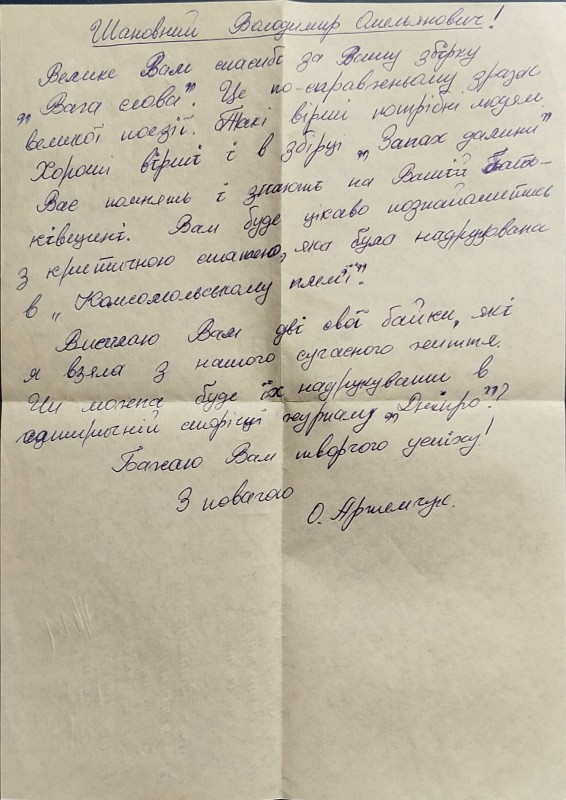 Шановний Володимир Омелянович!
Велике Вам спасибі за Вашу збірку
„Вага слова". Це по-справжньому зразок
великої поезії. Такі вірші потрібні людям.
Хороші вірші і в збірці „Запах далини"
Вас помнять і знають на Вашій Бать-
ківщині. Вам буде цікаво познайомитись
з критичною статтею, яка була надрукована
в „Комсомольському племі".
Висилаю Вам дві свої байки, які
я взяла з нашого сучасного життя.
Чи можна буде їх надрукувати в
сатиричній сторінці журналу „Дніпро"?
Бажаю Вам творчого успіху!
З повагою
О. Артемчук.